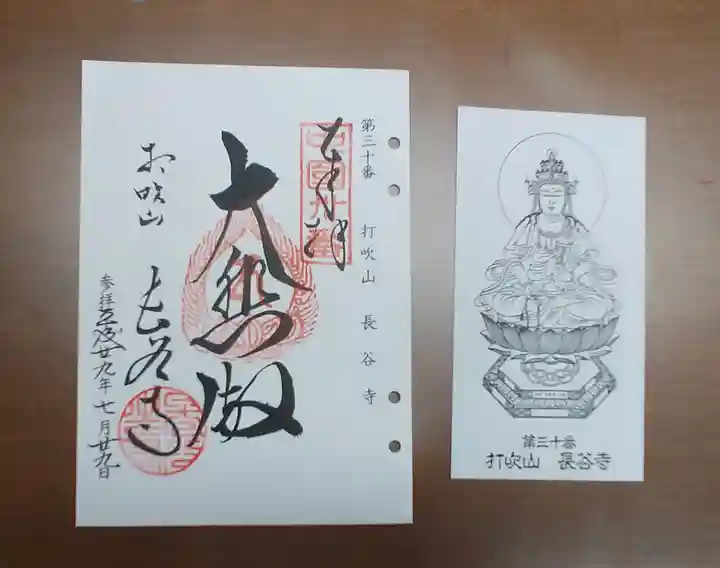 第三十番 打吹山 長谷寺
奉拝
大悲殿
打吹山
長谷寺
参拝平成廿九年七月廿九日
第三十番
打吹山 長谷寺